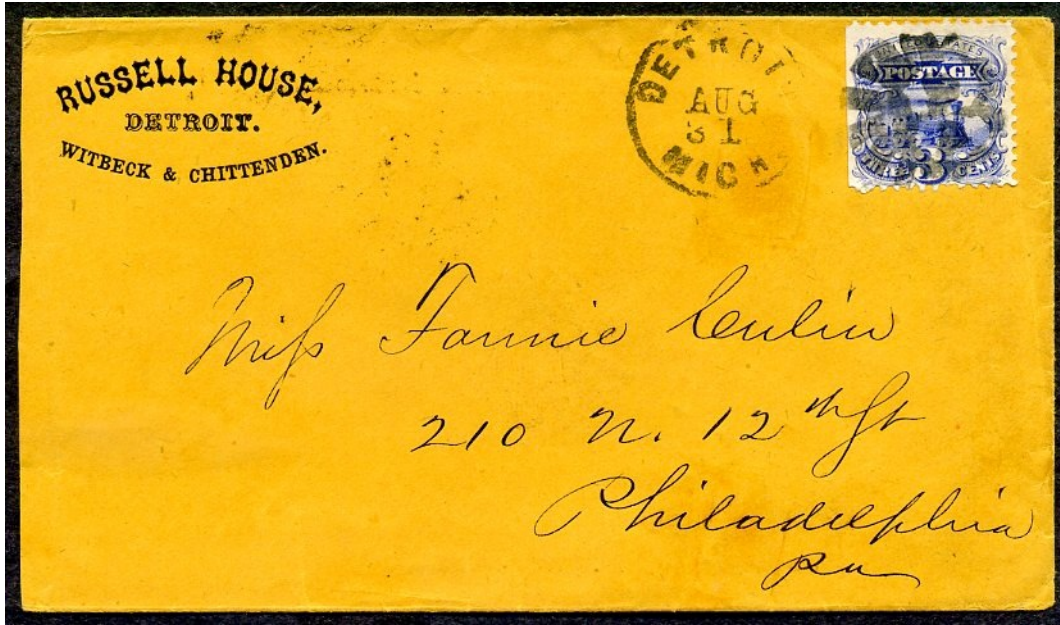 RUSSELL HOUSE,
DETROIT.
WITBECK & CHITTENDEN.
DETROIT
AUG
31
MICH
UNITED STATES
POSTAGE
THREE 3 CENTS
Miss Fannie Culin
210 N. 12th St
Philadelphia
Pa